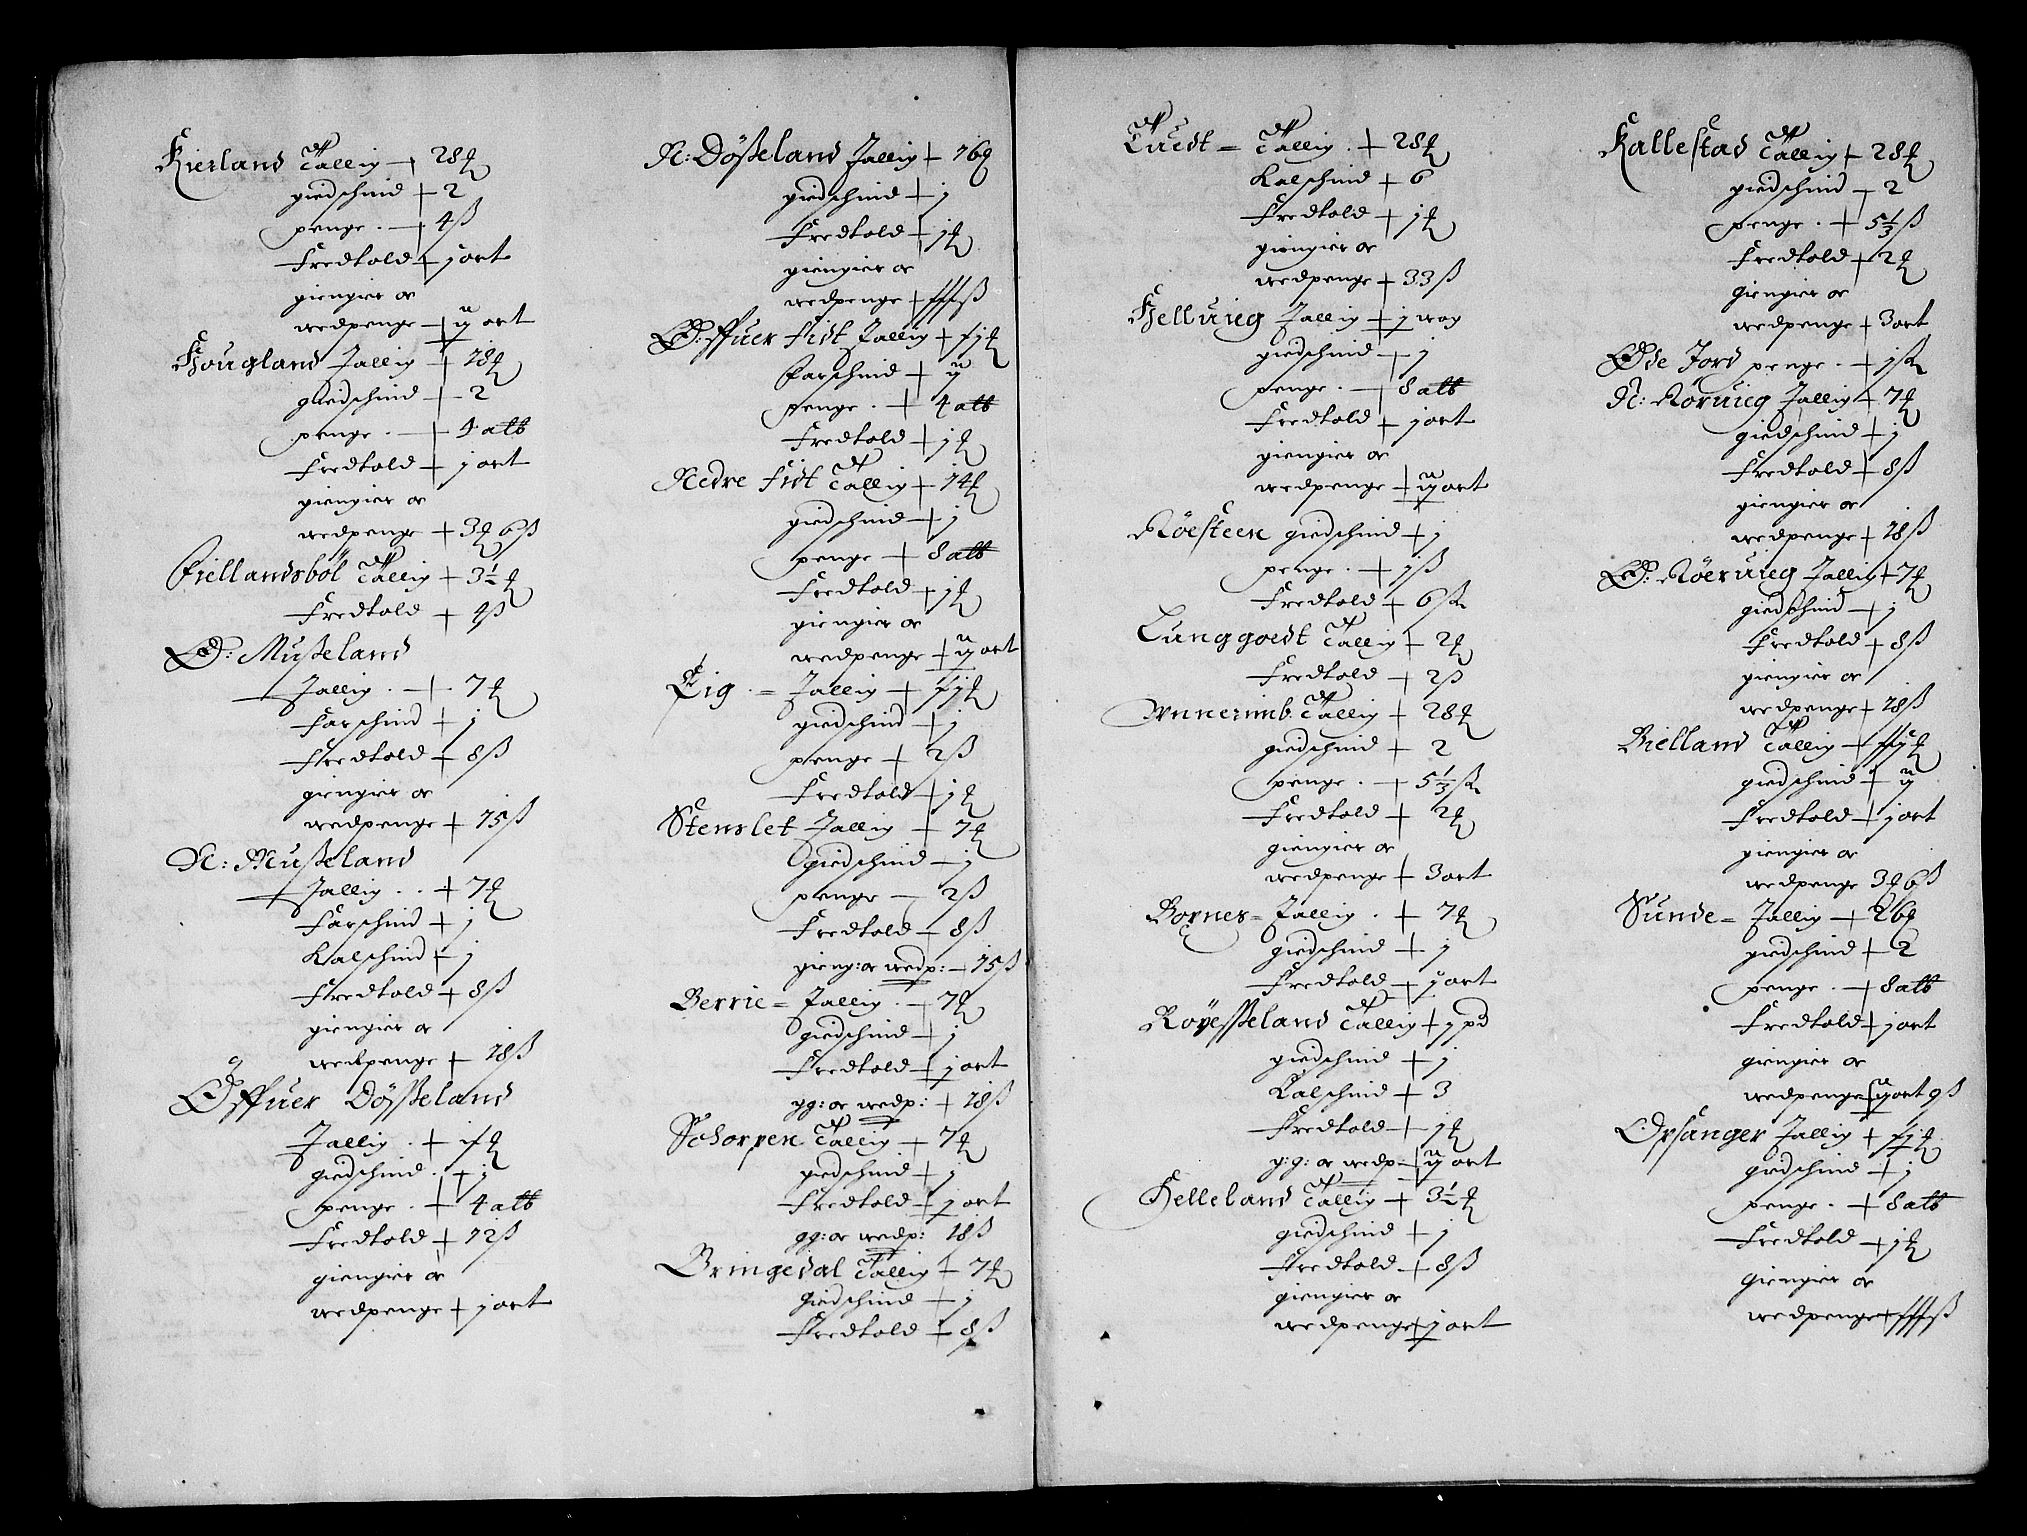 Kierland Tallig + 28 ℔
giedschind + 2
penge. + 4 ß
Fredtold + j ort
giengier or
wedpenge + ij ort
Hougland Tallig + 18 ℔
giedschind + 2
penge. + 4 alb
Fredtold + j ort
giengier or
wedpenge + 3 ℔ 6 ß
Fiellandsböl Tallig + 3½ ℔
Fredtold + 4 ß
Ö: Mußeland
Tallig. + 7 ℔
Farschind + j
Fredtold + 8 ß
giengier or
wedpenge + 15 ß
N: Mußeland
Tallig.. + 7 ℔
Farschind + j
Kalschind + j
Fredtold + 8 ß
giengier or
wedpenge + 18 ß
Öffuer Dößeland
Tallig. +
giedschind. + j
penge. + 4 alb
Fredtold + 12 ß
giengier or
wedpenge + j ort
N: Dößeland Tallig + 16 ℔
giedschind + j
Fredtold + j ℔
giengier or
wedpenge +
Ö:ffuer Fist Tallig +
Farschind + ij
penge. + 4 alb
Fredtold + j ℔
Nedre Fist Tallig + 14 ℔
giedschind + j
penge + 8 alb
Fredtold + j ℔
giengier or
wedpenge + ij ort
Eig. = Tallig +
giedschind + j
penge + 2 ß
Fredtold + j ℔
Stenslet Tallig + 7 ℔
giedschind + j
penge + 2 ß
Fredtold + 8 ß
gieng: or wedp: + 15 ß
Berrie = Tallig. + 7 ℔
giedschind + j
Fredtold + j ort
gg: or wedp: + 18 ß
Schorpen Tallig + 7 ℔
giedschind + j
Fredtold + j ort
gg: or wedp: 18 ß
Bringedal Tallig + 7 ℔
Giedschind + j
Fredtold + 8 ß
Tuedt = Tallig. + 28 ℔
Kalschind + 6
Fredtold + j ℔
giengier or
wedpenge + 33 ß
Helluieg Tallig + j wog
giedschind + j
penge. + 8 alb
Fredtold + j ort
giengier or
wedpenge + ij ort
Röesteen giedschind + j
penge. + j ß
Fredtold + 6 sk
Lunggoedt Tallig + 2 ℔
Fredtold + 2 ß
Wnnerimb. Tallig + 28 ℔
giedschind + 2
penge. + 5⅓ sk
Fredtold + 2 ℔
giengier or
wedpenge + 3 ort
Bornes = Tallig. + 7 ℔
giedschind + j
Fredtold + j ort
Röyeßeland Tallig + j pd
giedschind + j
Kalschind + 3
Fredtold + j ℔
g: g: or wedp: + ij ort
Helleland Tallig + 3½ ℔
giedschind + j
Fredtold + 8 ß
giengier or
wedpenge + j ort
Kallestad Tallig + 28 ℔
giedschind + 2
penge. + 5⅓ ß
Fredtold + 2 ℔
Giengier or
wedpenge + 3 ort
Öde Jord penge. + j sk
N: Röruieg Tallig + 7 ℔
giedschind + j
Fredtold + 8 ß
giengier or
wedpenge + 18 ß
Ö: Röeruieg Tallig + 7 ℔
giedschind + j
Fredtold + 8 ß
giengier or
wedpenge + 18 ß
Bielland Tallig +
giedschind + ij
Fredtold + j ort
giengier or
wedpenge 3 ℔ 6 ß
Sunde = Tallig + 26 ℔
giedschind + 2
penge. + 8 alb
Fredtold + j ort
giengier or
wedpenge + ij ort 9 ß
Opsanger Tallig +
giedschind + j
penge. + 8 alb
Fredtold + j ℔
Giengier or
wedpenge +